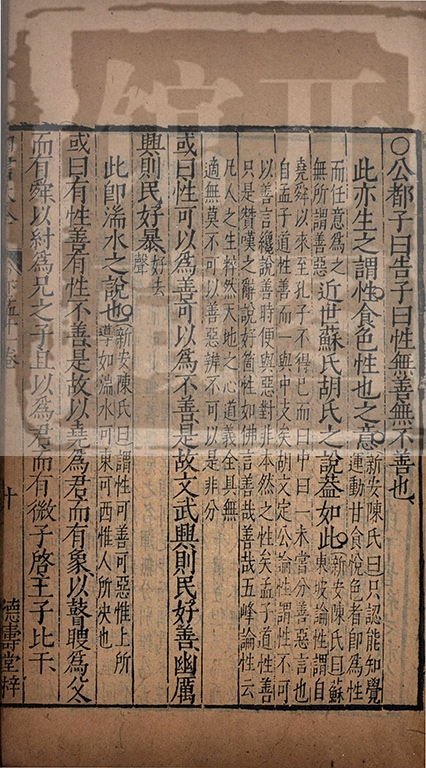 ○公都子曰告子曰性無善無不善也
此亦生之謂性食色性也之意新安陳氏曰只認能知覺
運動甘食悅色者即爲性
而任意爲之
無所謂善惡近世蘇氏胡氏之說蓋如此新安陳氏曰蘇
東坡論性謂自
堯舜以來至孔子不得已而曰中曰一未嘗分善惡言也
自孟子道性善而一與中支矣胡文定公論性謂性不可
以善言纔說善時便與惡對非本然之性矣孟子道性善
只是贊嘆之辭說好箇性如佛言善哉善哉五峰論性云
凡人之生粹然天地之心道義全具無
適無莫不可以善惡辨不可以是非分
或曰性可以爲善可以爲不善是故文武興則民好善幽厲
興則民好暴好去
聲
此即湍水之說也新安陳氏曰謂性可善可惡惟上所
導如湍水可東可西惟人所決也
或曰有性善有性不善是故以堯爲君而有象以瞽瞍爲父
而有舜以紂爲兄之子且以爲君而有微子啓王子比干
十
德壽堂梓